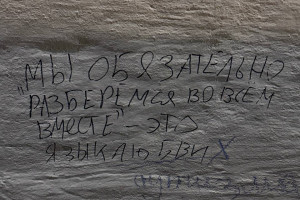 "МЫ ОБЯЗАТЕЛЬНО
РАЗБЕРЁМСЯ ВО ВСЕМ
ВМЕСТЕ" – ЭТО
ЯЗЫК ЛЮБВИ